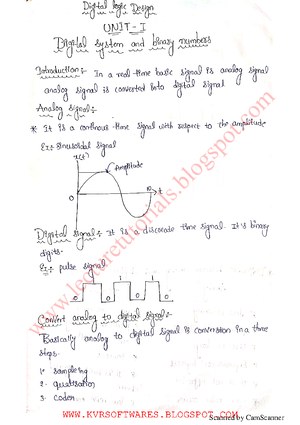 Digital logic Design
UNIT-I
Digital system and binary numbers
Introduction:- In a real time basic signal is analog signal
analog signal is converted into digital signal
Analog signal:-
* It is a continous time signal with respect to the amplitude
Ex:- Sinusoidal signal
x(t)
Amplitude
0
t
Digital signal:- It is a discreate time signal. It's binary
digits.
Ex:- pulse signal
1 1 1
0 0 0 0
Convert analog to digital signal:-
Basically analog to digital signal is conversion in a three
steps.
1. sampling
2. quatisation
3. coder
www.lecturetutorials.blogspot.com
WWW.KVRSOFTWARES.BLOGSPOT.COM
Scanned by CamScanner